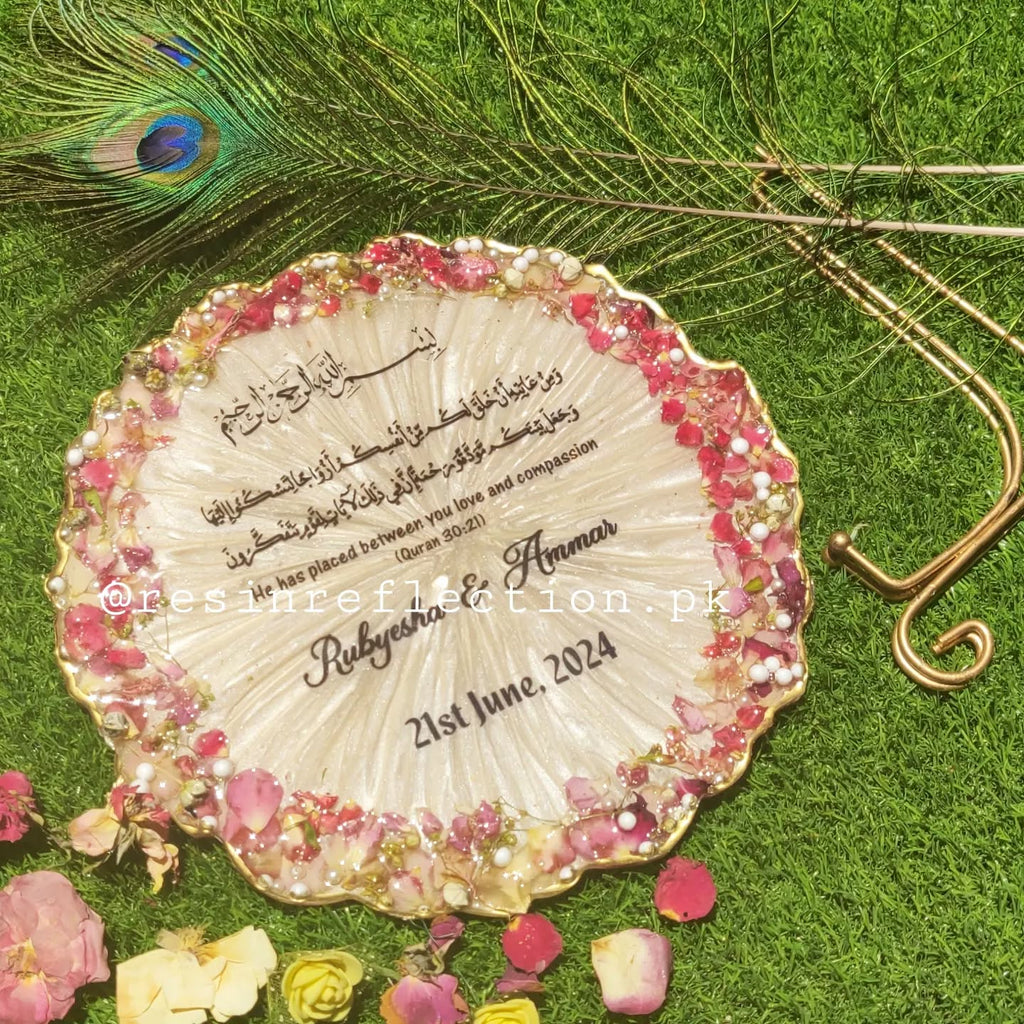 بِسْمِ اللَّهِ الرَّحْمَٰنِ الرَّحِيمِ
وَمِنْ ءَايَٰتِهِۦٓ أَنْ خَلَقَ لَكُم مِّنْ أَنفُسِكُمْ أَزْوَٰجًا لِّتَسْكُنُوٓا۟ إِلَيْهَا
وَجَعَلَ بَيْنَكُم مَّوَدَّةً وَرَحْمَةً إِنَّ فِى ذَٰلِكَ لَءَايَٰتٍ لِّقَوْمٍ يَتَفَكَّرُونَ
He has placed between you love and compassion
(Quran 30:21)
@resinreflection.pk
Rubyesha & Ammar
21st June, 2024